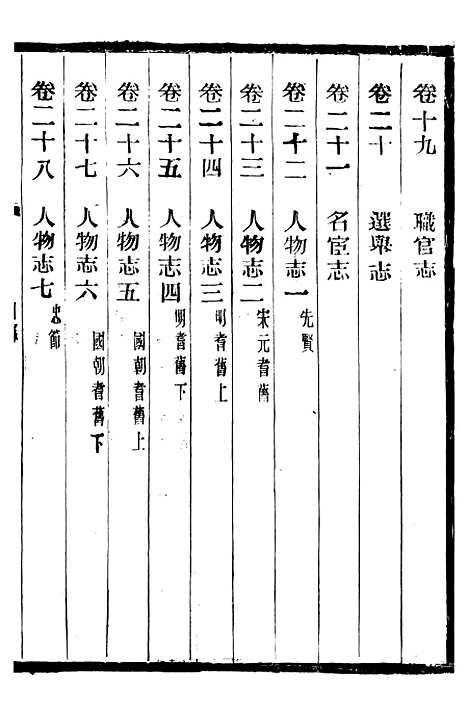 卷十九 職官志
卷二十 選舉志
卷二十一 名宦志
卷二十二 人物志一 先賢
卷二十三 人物志二 宋元耆舊
卷二十四 人物志三 明耆舊上
卷二十五 人物志四 明耆舊下
卷二十六 人物志五 國朝耆舊上
卷二十七 人物志六 國朝耆舊下
卷二十八 人物志七 忠節